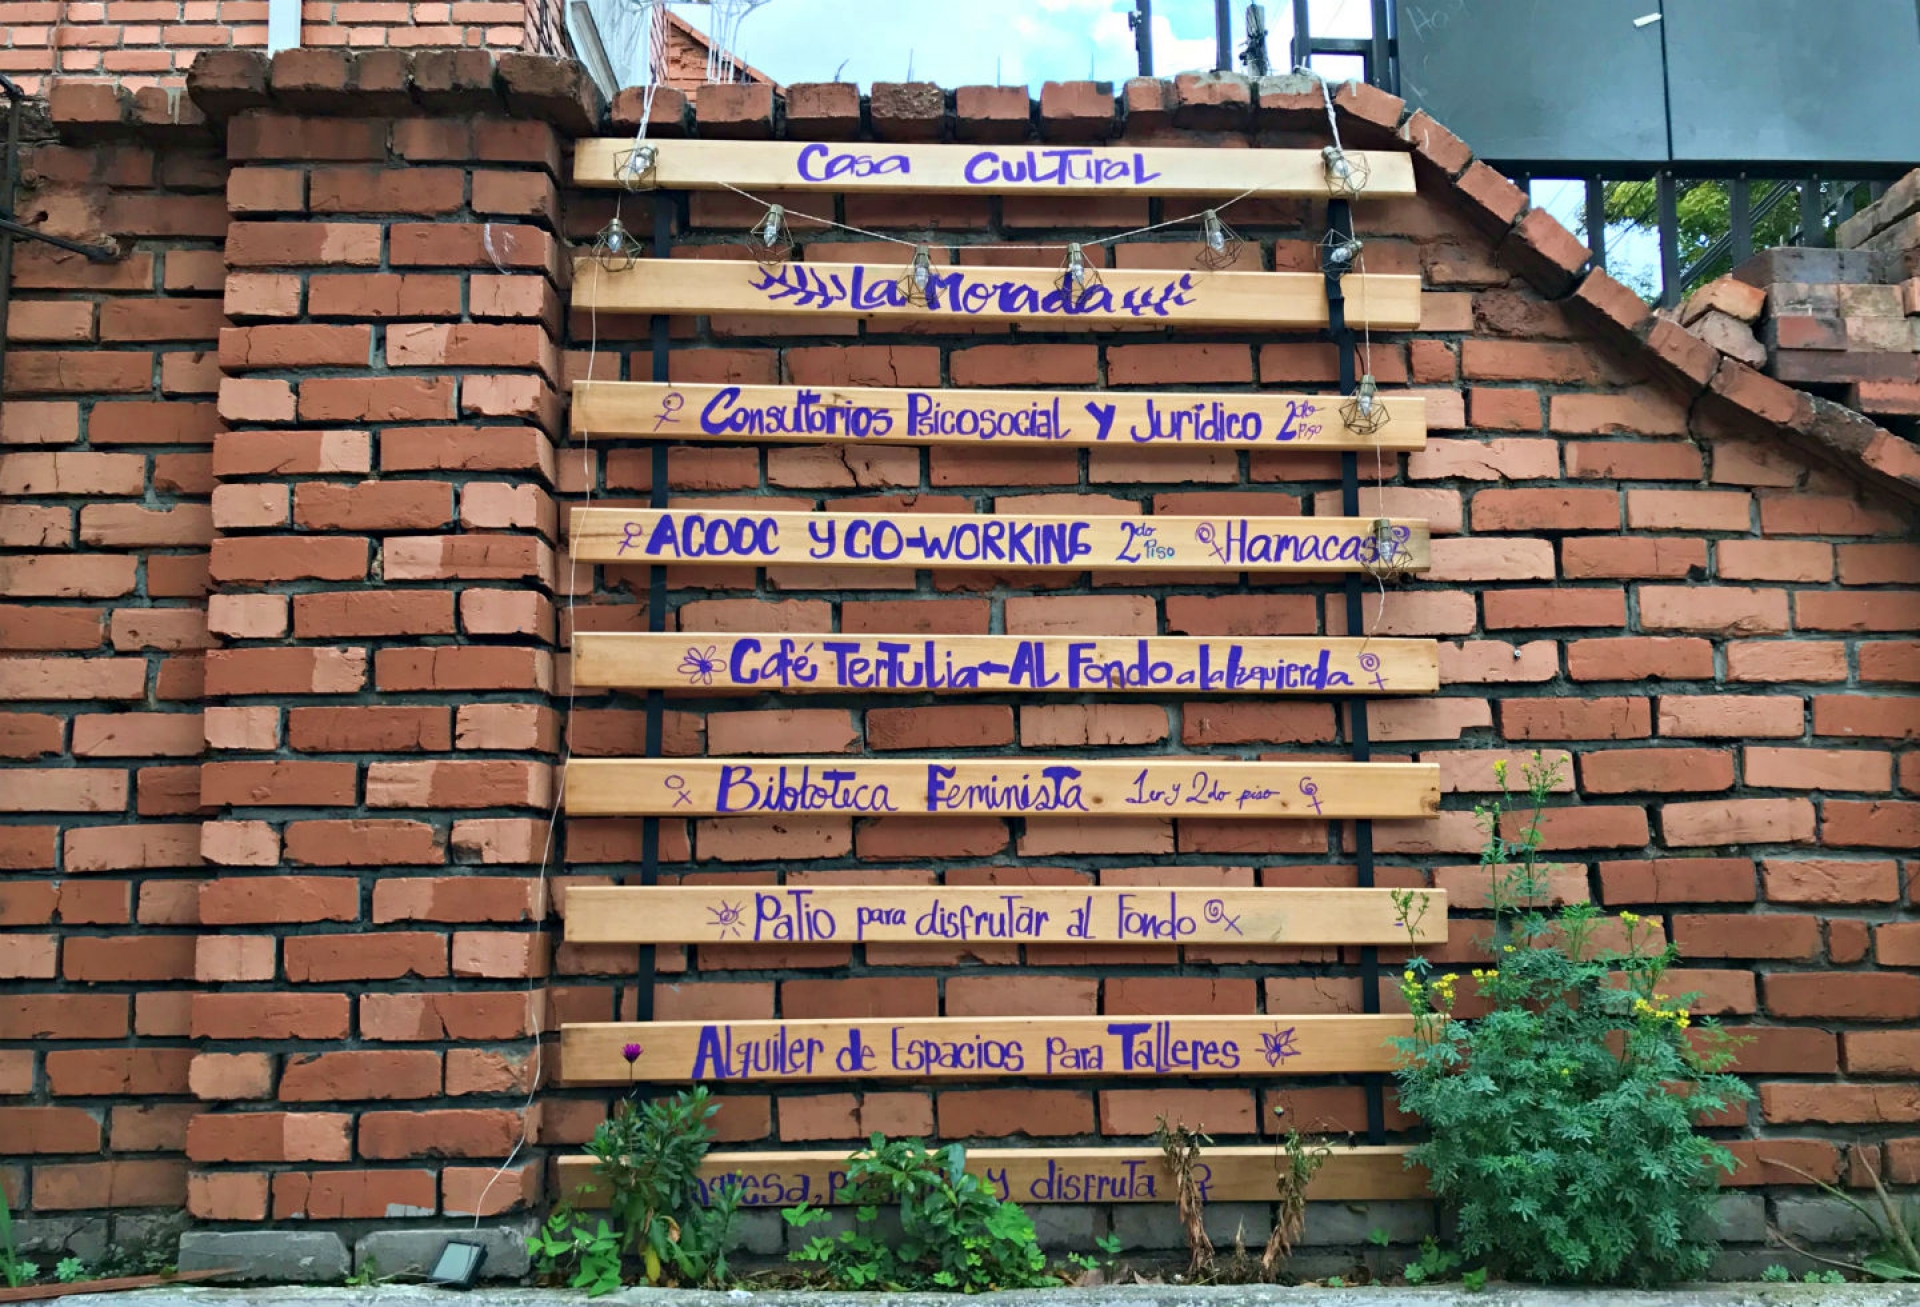 Casa Cultural
La Morada
Consultorios Psicosocial y Jurídico 2do Piso
ACOOC y CO-WORKING 2do Piso Hamacas
Café Tertulia - Al Fondo a la Izquierda
Biblioteca Feminista 1er y 2do piso
Patio para disfrutar al Fondo
Alquiler de Espacios para Talleres
y disfruta